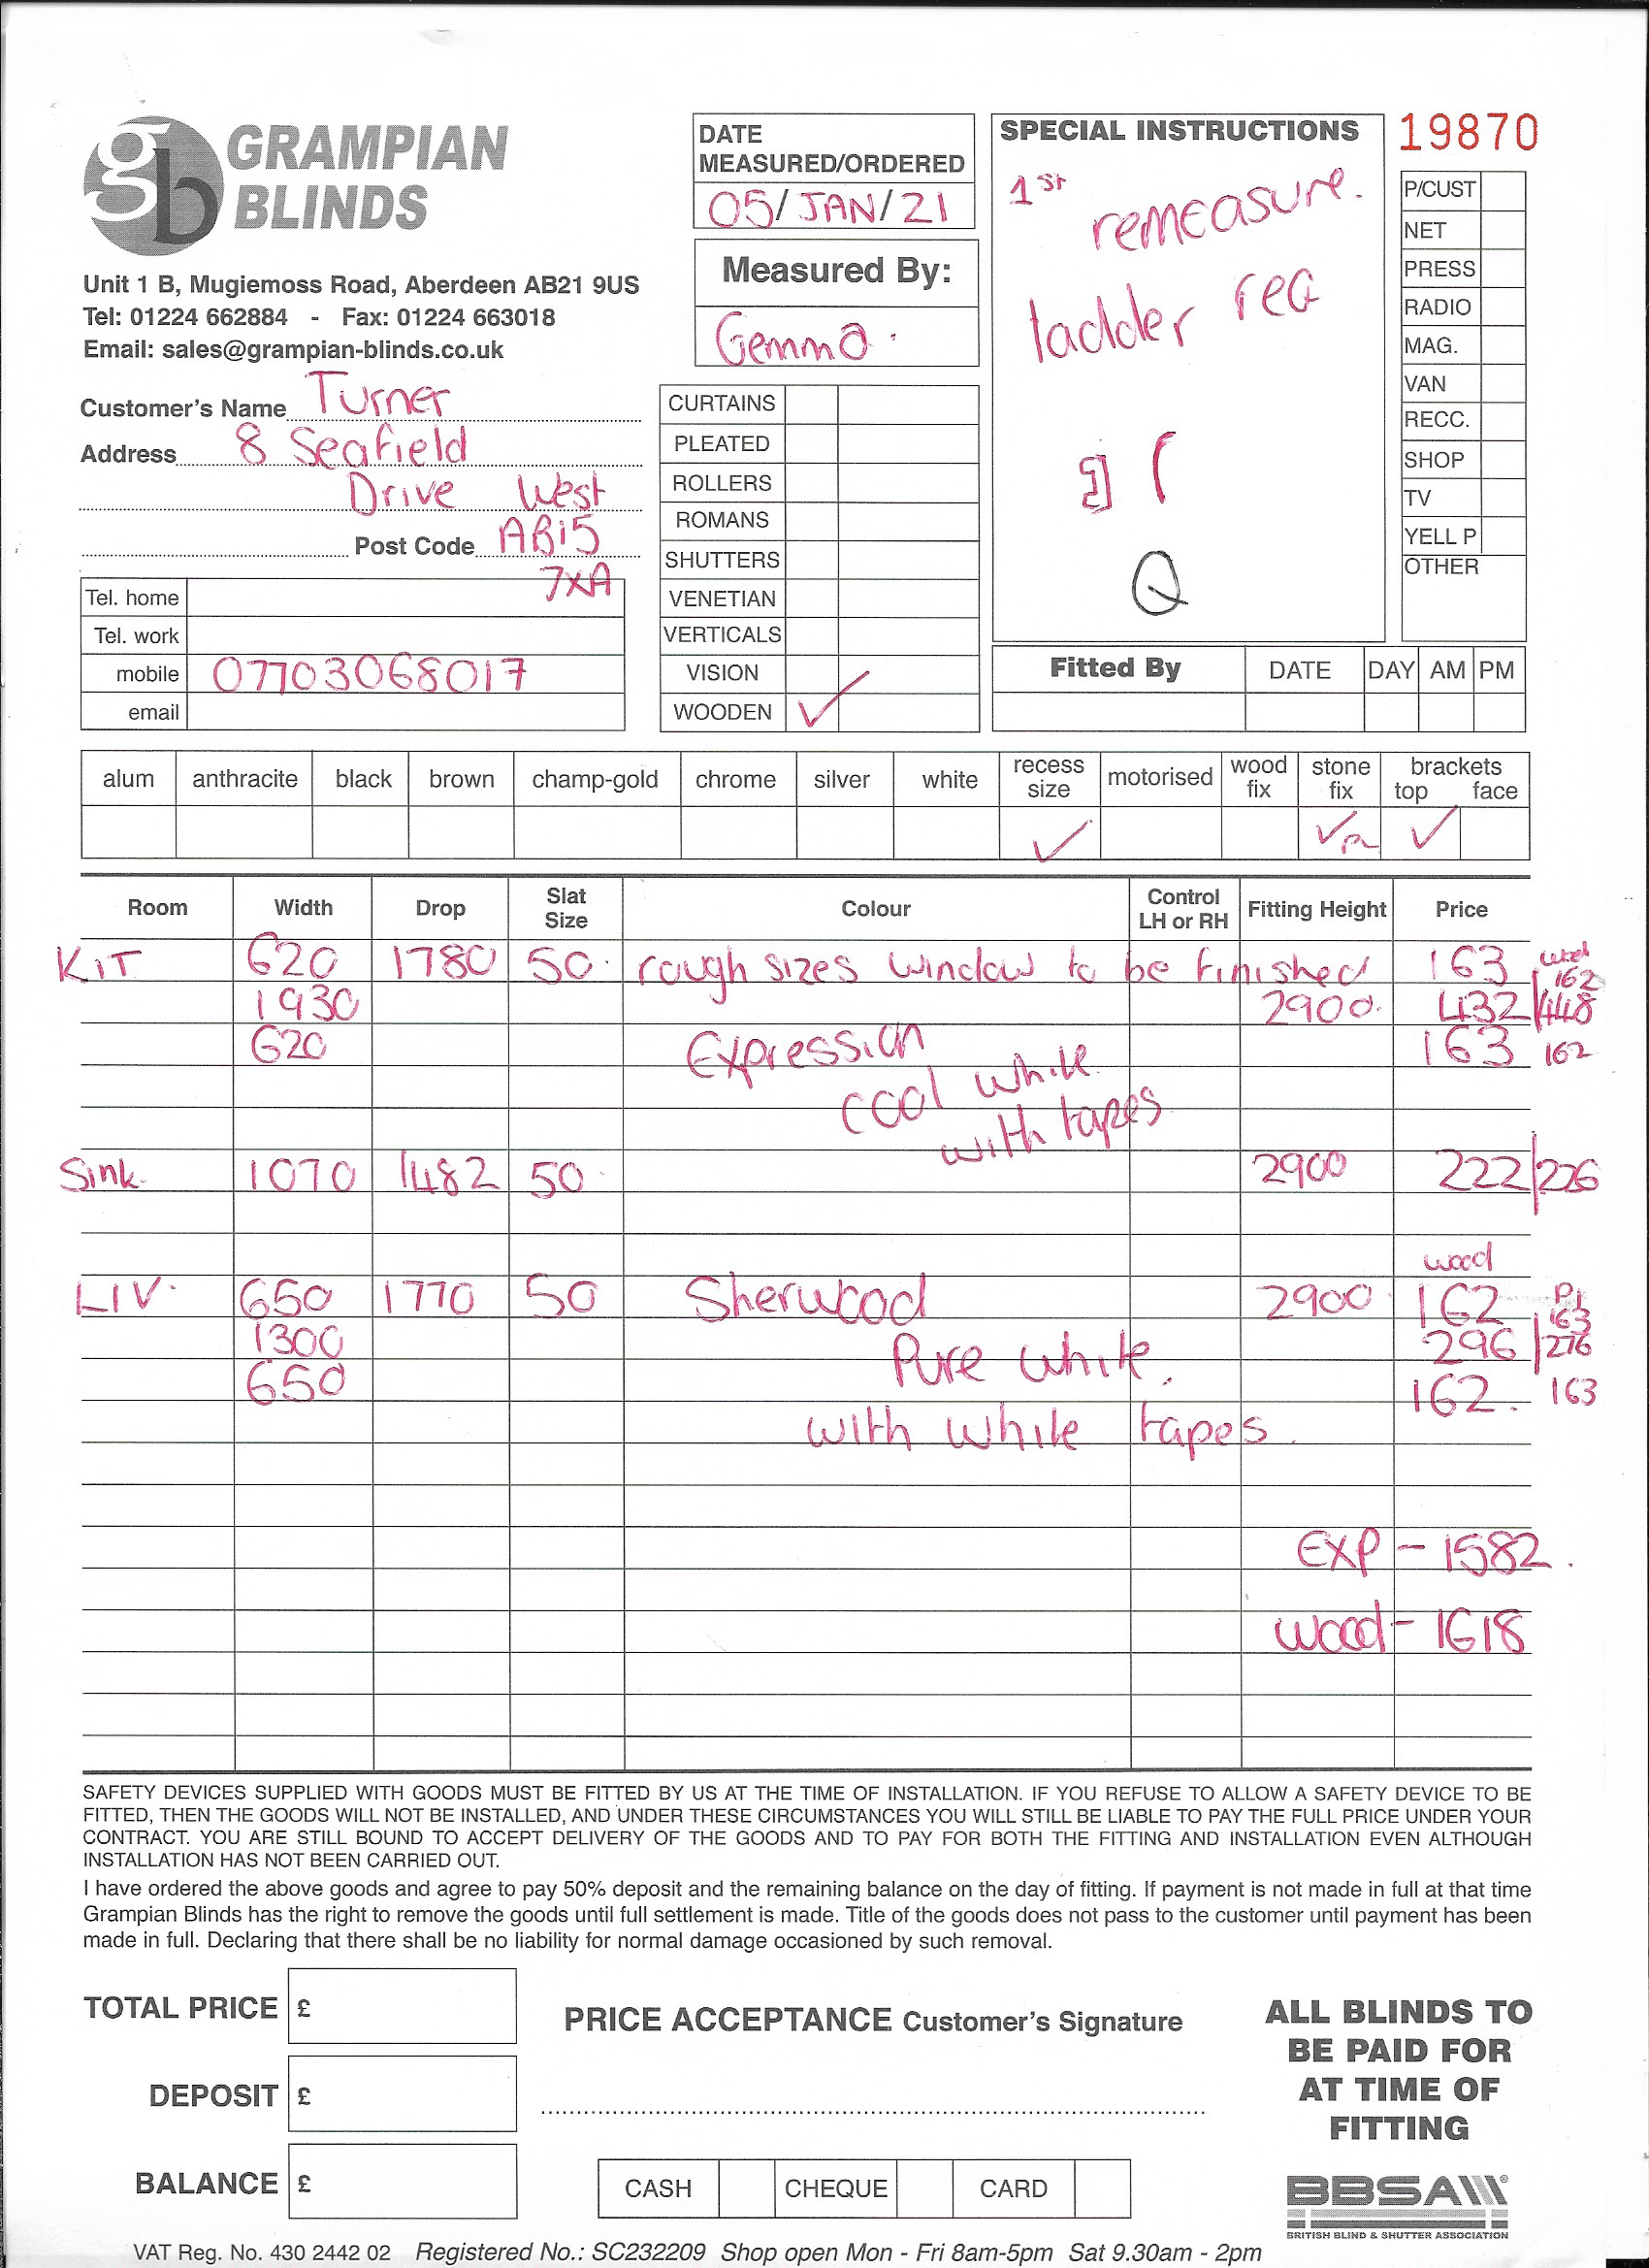 GRAMPIAN
BLINDS
Unit 1 B, Mugiemoss Road, Aberdeen AB21 9US
Tel: 01224 662884 - Fax: 01224 663018
Email: sales@grampian-blinds.co.uk
DATE
MEASURED/ORDERED
05/JAN/21
Measured By:
Gemma.
SPECIAL INSTRUCTIONS
1st
remeasure.
ladder req
Q
19870
P/CUST
NET
PRESS
RADIO
MAG.
VAN
RECC.
SHOP
TV
YELL P
OTHER
Customer's Name Turner
Address 8 Seafield
Drive West
Post Code AB15
7XA
Tel. home
Tel. work
mobile 07703068017
email
CURTAINS
PLEATED
ROLLERS
ROMANS
SHUTTERS
VENETIAN
VERTICALS
VISION
WOODEN ✓
Fitted By DATE DAY AM PM
alum anthracite black brown champ-gold chrome silver white recess size motorised wood fix stone fix brackets top face
✓ ✓ ✓
Room Width Drop Slat Size Colour Control LH or RH Fitting Height Price
KIT 620 1780 50. rough sizes window to be finished 163 wood 162
1930 2900. 432/448
620 Expression 163 162
cool white
with tapes
Sink. 1070 1482 50 2900 222/226
wood
LIV. 650 1770 50 Sherwood 2900 162 163
1300 296/276
650 Pure white. 162. 163
with white tapes.
EXP - 1582.
wood - 1618
SAFETY DEVICES SUPPLIED WITH GOODS MUST BE FITTED BY US AT THE TIME OF INSTALLATION. IF YOU REFUSE TO ALLOW A SAFETY DEVICE TO BE
FITTED, THEN THE GOODS WILL NOT BE INSTALLED, AND UNDER THESE CIRCUMSTANCES YOU WILL STILL BE LIABLE TO PAY THE FULL PRICE UNDER YOUR
CONTRACT. YOU ARE STILL BOUND TO ACCEPT DELIVERY OF THE GOODS AND TO PAY FOR BOTH THE FITTING AND INSTALLATION EVEN ALTHOUGH
INSTALLATION HAS NOT BEEN CARRIED OUT.
I have ordered the above goods and agree to pay 50% deposit and the remaining balance on the day of fitting. If payment is not made in full at that time
Grampian Blinds has the right to remove the goods until full settlement is made. Title of the goods does not pass to the customer until payment has been
made in full. Declaring that there shall be no liability for normal damage occasioned by such removal.
TOTAL PRICE £
DEPOSIT £
BALANCE £
PRICE ACCEPTANCE Customer's Signature
CASH CHEQUE CARD
ALL BLINDS TO
BE PAID FOR
AT TIME OF
FITTING
BBSA
BRITISH BLIND & SHUTTER ASSOCIATION
VAT Reg. No. 430 2442 02 Registered No.: SC232209 Shop open Mon - Fri 8am-5pm Sat 9.30am - 2pm